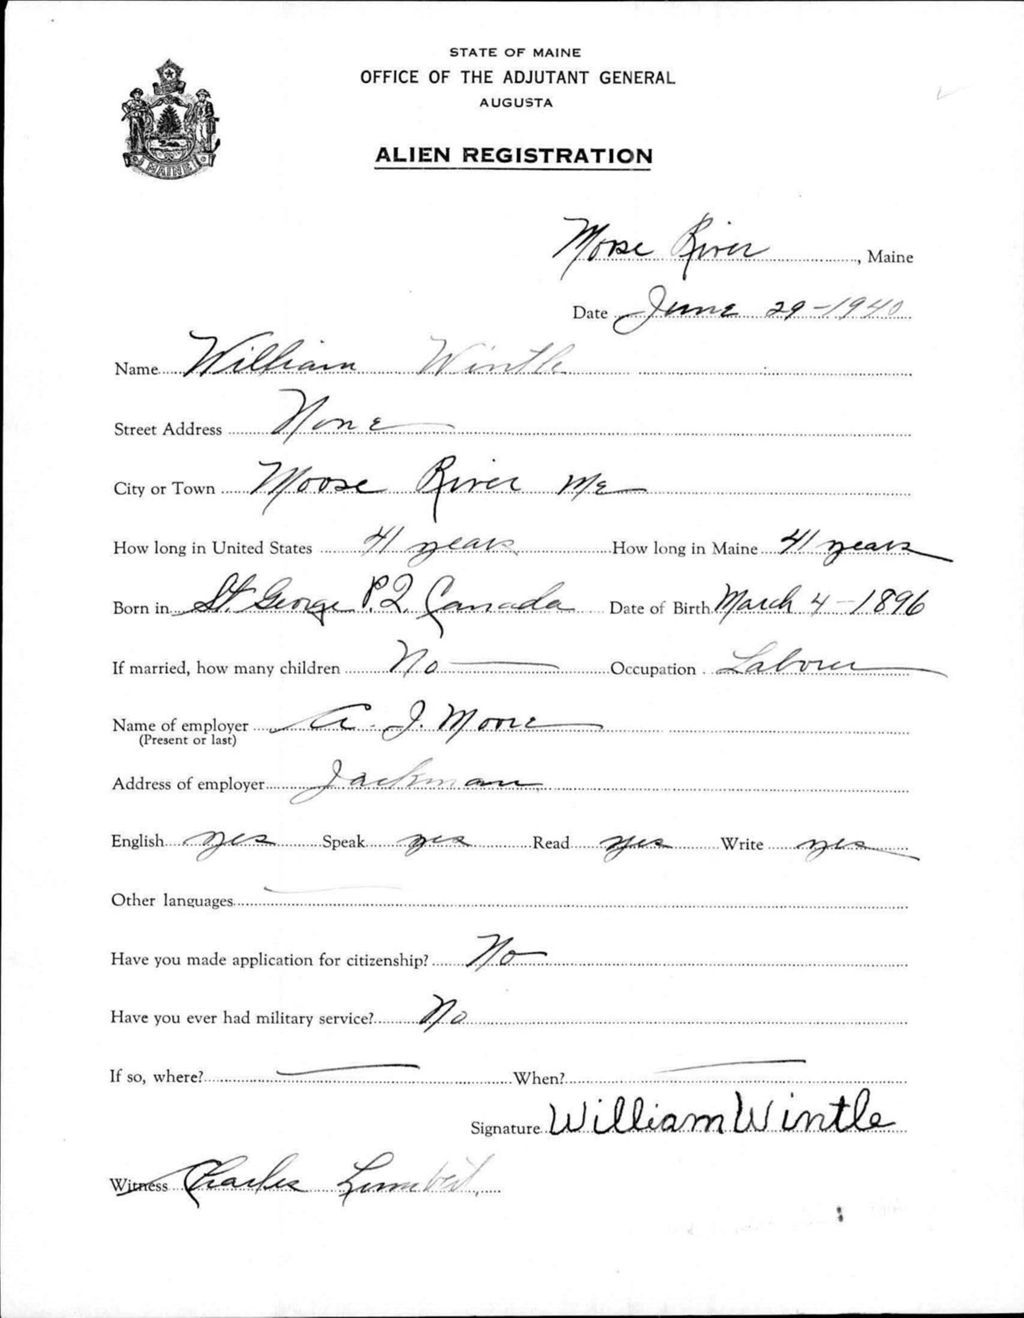 STATE OF MAINE
OFFICE OF THE ADJUTANT GENERAL
AUGUSTA
ALIEN REGISTRATION
MAINE
Moose River, Maine
Date June 29-1940
Name William Wintle
Street Address None
City or Town Moose River Me
How long in United States 41 years How long in Maine 41 years
Born in St. George P.Q. Canada Date of Birth March 4-1896
If married, how many children No Occupation Laborer
Name of employer A. J. Moore
(Present or last)
Address of employer Jackman
English yes Speak yes Read yes Write yes
Other languages
Have you made application for citizenship? No
Have you ever had military service? No
If so, where? When?
Signature William Wintle
Witness Charles